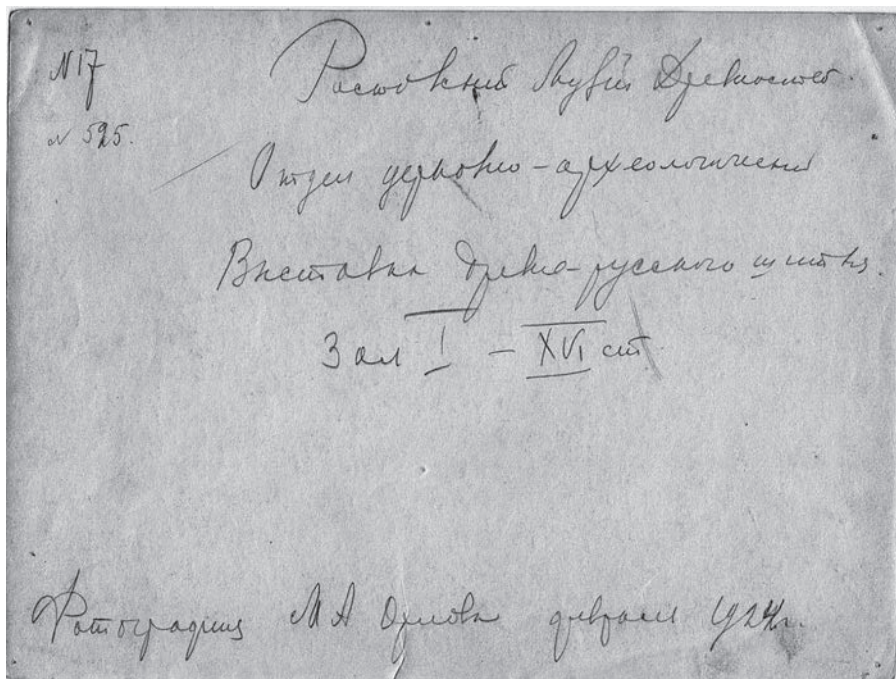 N 17
N 525.
Ростовский Музей Древностей.
Отдел церковно-археологический
Выставка древне-русского шитья.
Зал I – XVI ст
Фотография М А Орлова февраля 1924 г.